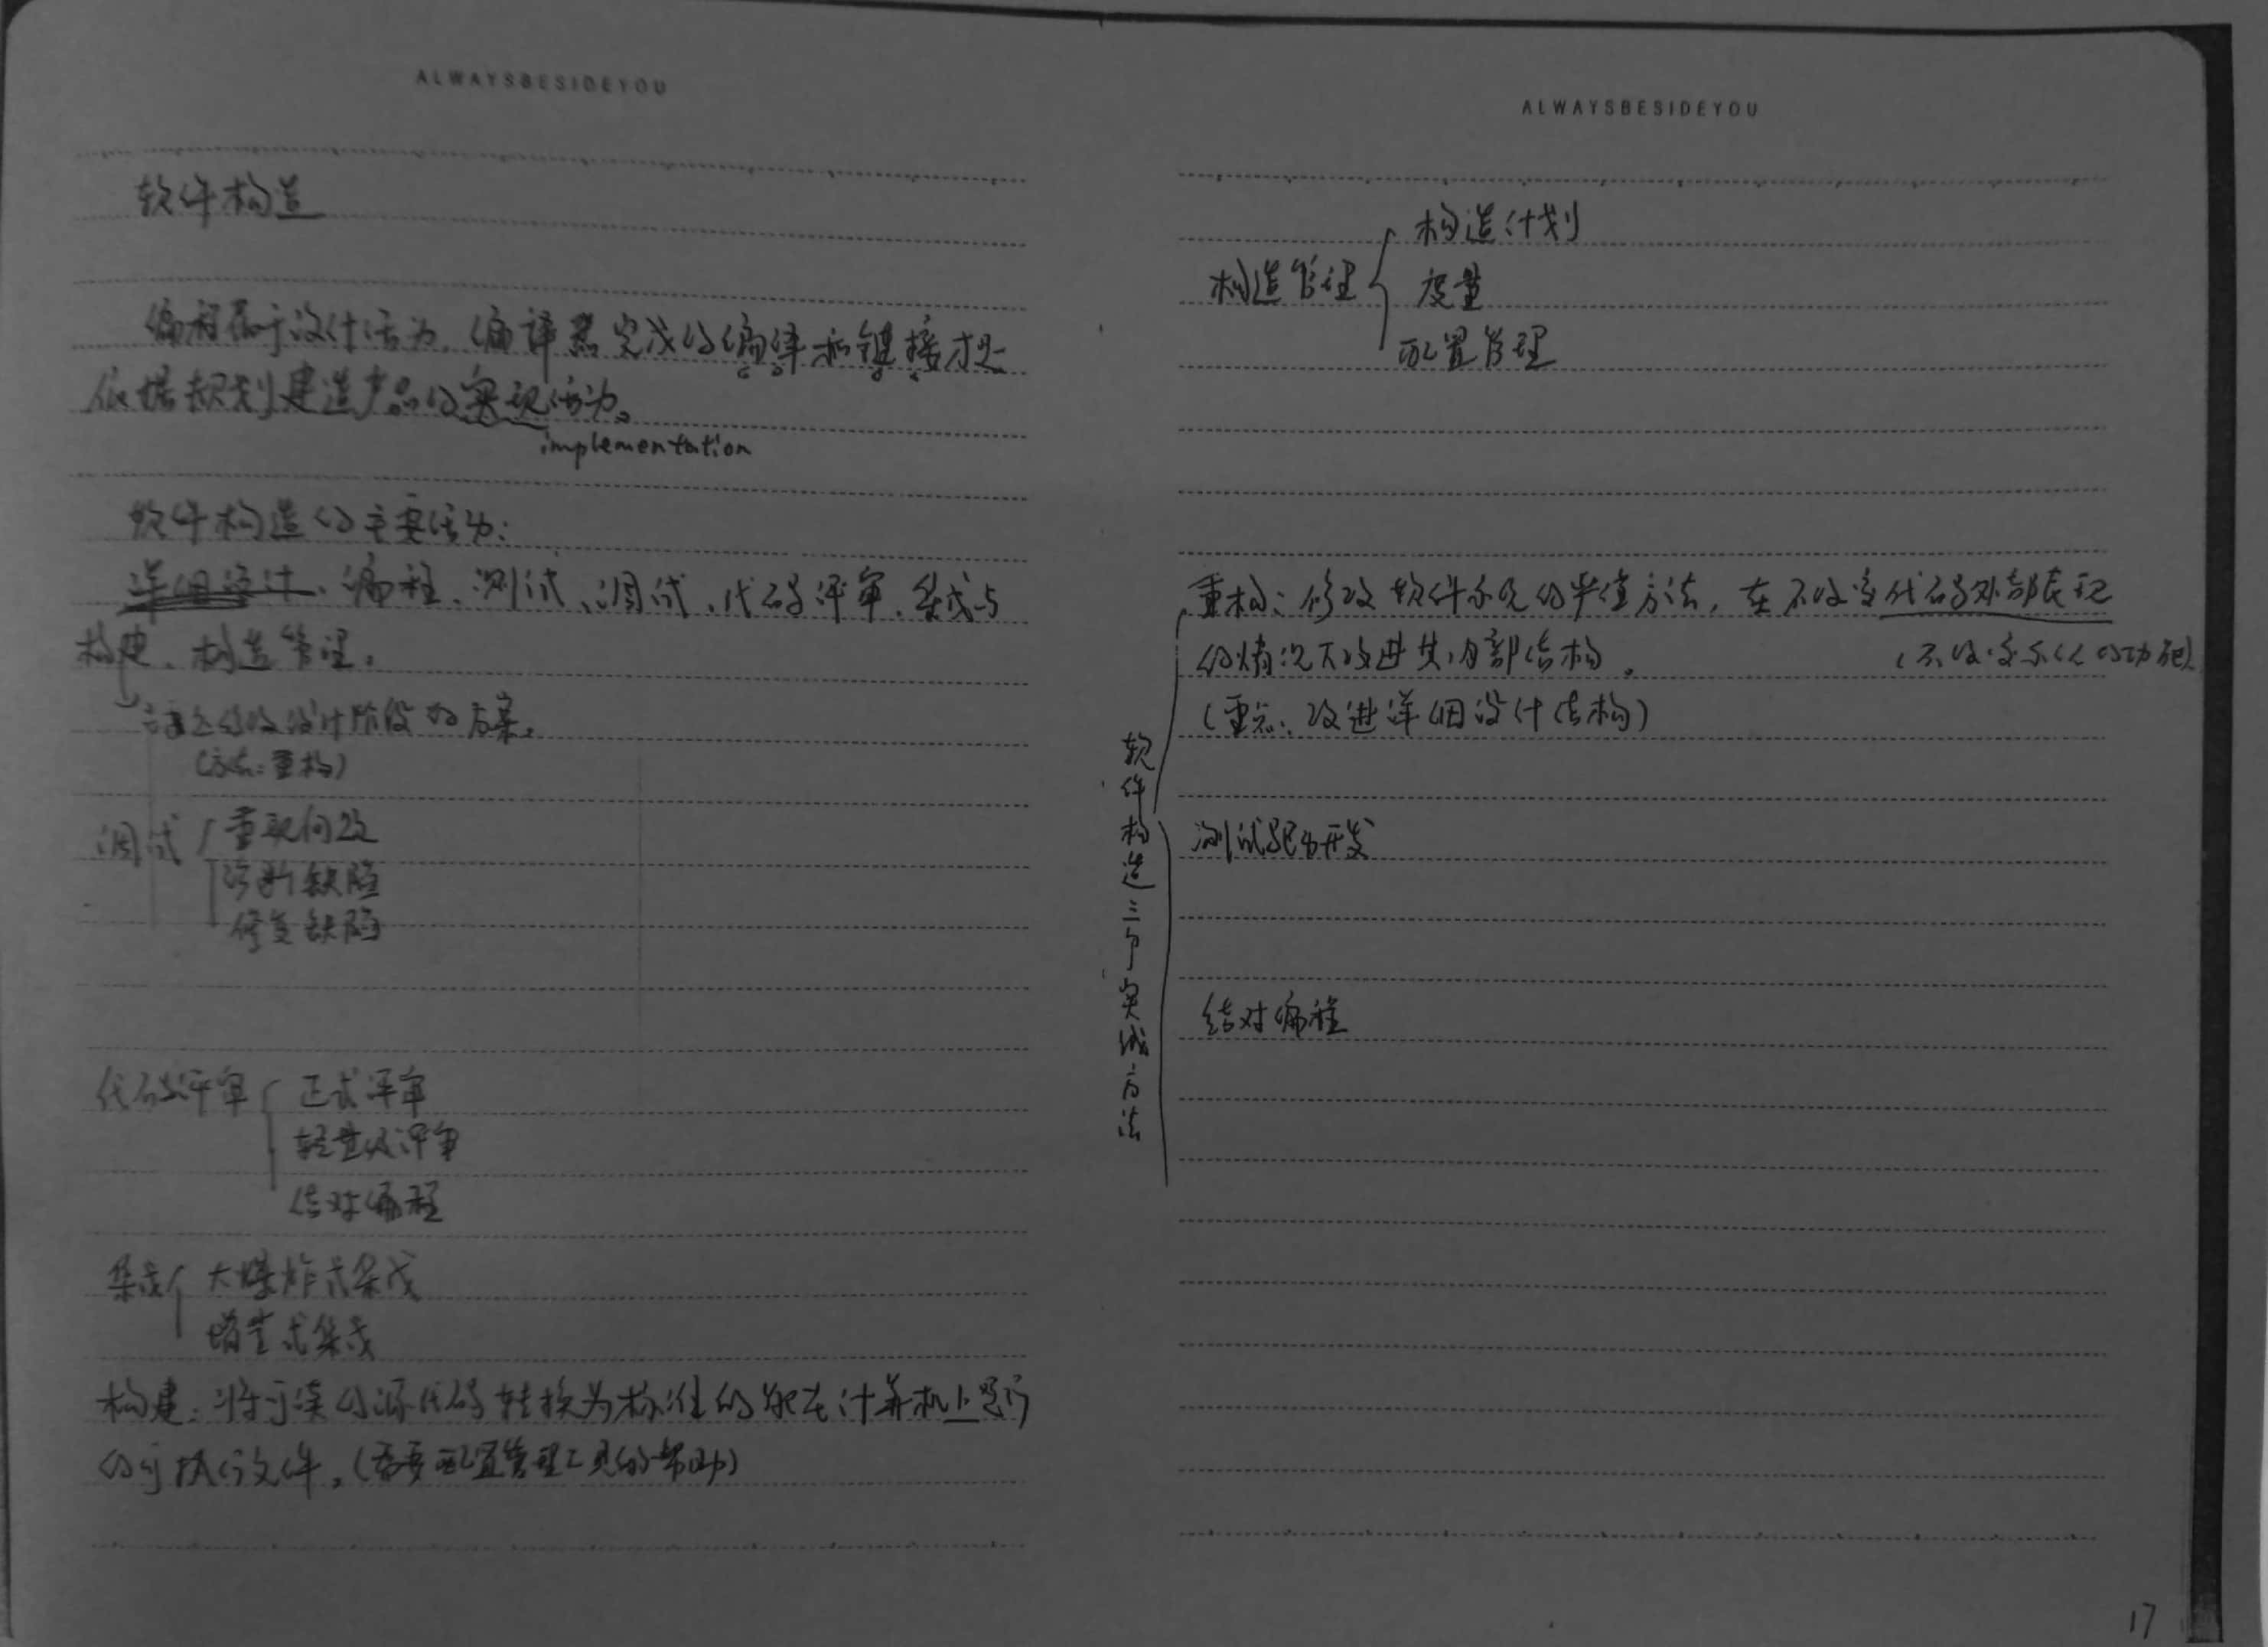 ALWAYSBESIDEYOU
软件构造
编程属于设计活动，编译器完成的编译和链接才是
依据规划建造产品的实现活动。
implementation
软件构造的主要活动：
详细设计、编程、测试、调试、代码评审、集成与
构建、构造管理。
修改设计阶段的方案。
(方法：重构)
调试
重现问题
诊断缺陷
修复缺陷
代码评审
正式评审
轻量级评审
结对编程
集成
大爆炸式集成
增量式集成
构建：将可读的源代码转换为标准的能在计算机上运行
的可执行文件。(需要配置管理工具的帮助)
ALWAYSBESIDEYOU
构造管理
构造计划
度量
配置管理
软件构造三个实践方法
重构：修改软件系统的严谨方法，在不改变代码外部表现
的情况下改进其内部结构。
(不改变系统的功能)
(重点：改进详细设计结构)
测试驱动开发
结对编程
17